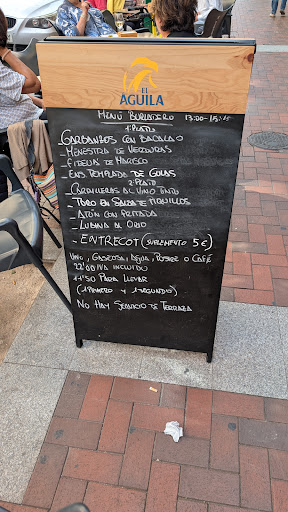 EL
AGUILA
MENÚ BURLADERO 13:00-15:15
1º PLATO
GARBANZOS CON BACALAO
- MENESTRA DE VERDURAS
- FIDEUA DE MARISCO
- ENS TEMPLADA DE GULAS
2º PLATO
- CARRILLERAS AL VINO TINTO
- TORO EN SALSA DE PIQUILLOS
- ATÚN CON FRITADA
- LUBINA AL ORIO
- ENTRECOT (SUPLEMENTO 5€)
VINO, GASEOSA, AGUA, POSTRE O CAFÉ
22'00 IVA INCLUIDO
+1'50 PARA LLEVAR
(1 PRIMERO Y 1 SEGUNDO)
NO HAY SERVICIO DE TERRAZA